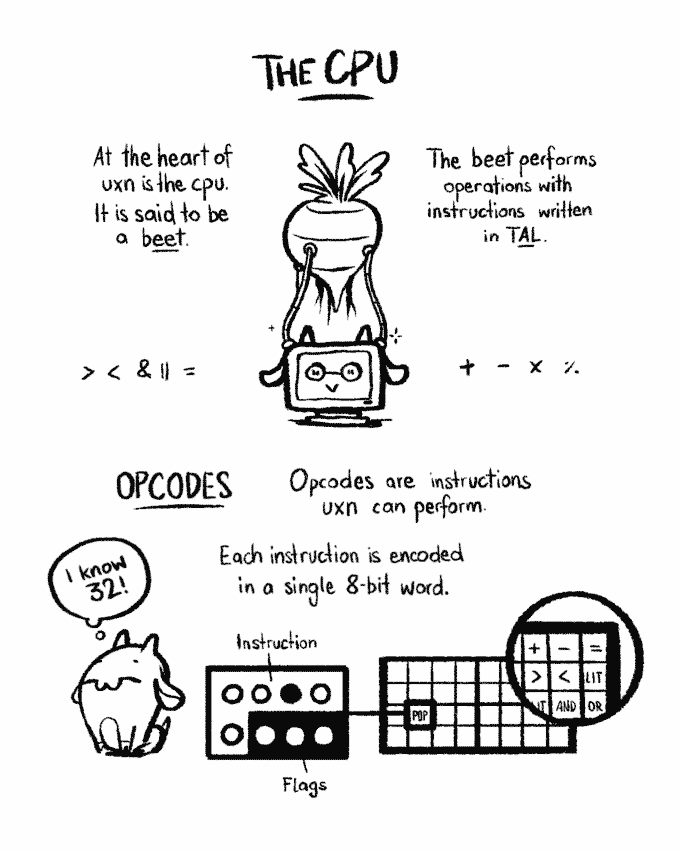 THE CPU
At the heart of
uxn is the cpu.
It is said to be
a beet.
The beet performs
operations with
instructions written
in TAL.
> < & || =
+ - x %
OPCODES
Opcodes are instructions
uxn can perform.
I know
32!
Each instruction is encoded
in a single 8-bit word.
Instruction
+ - =
> < LIT
AND OR
POP
Flags